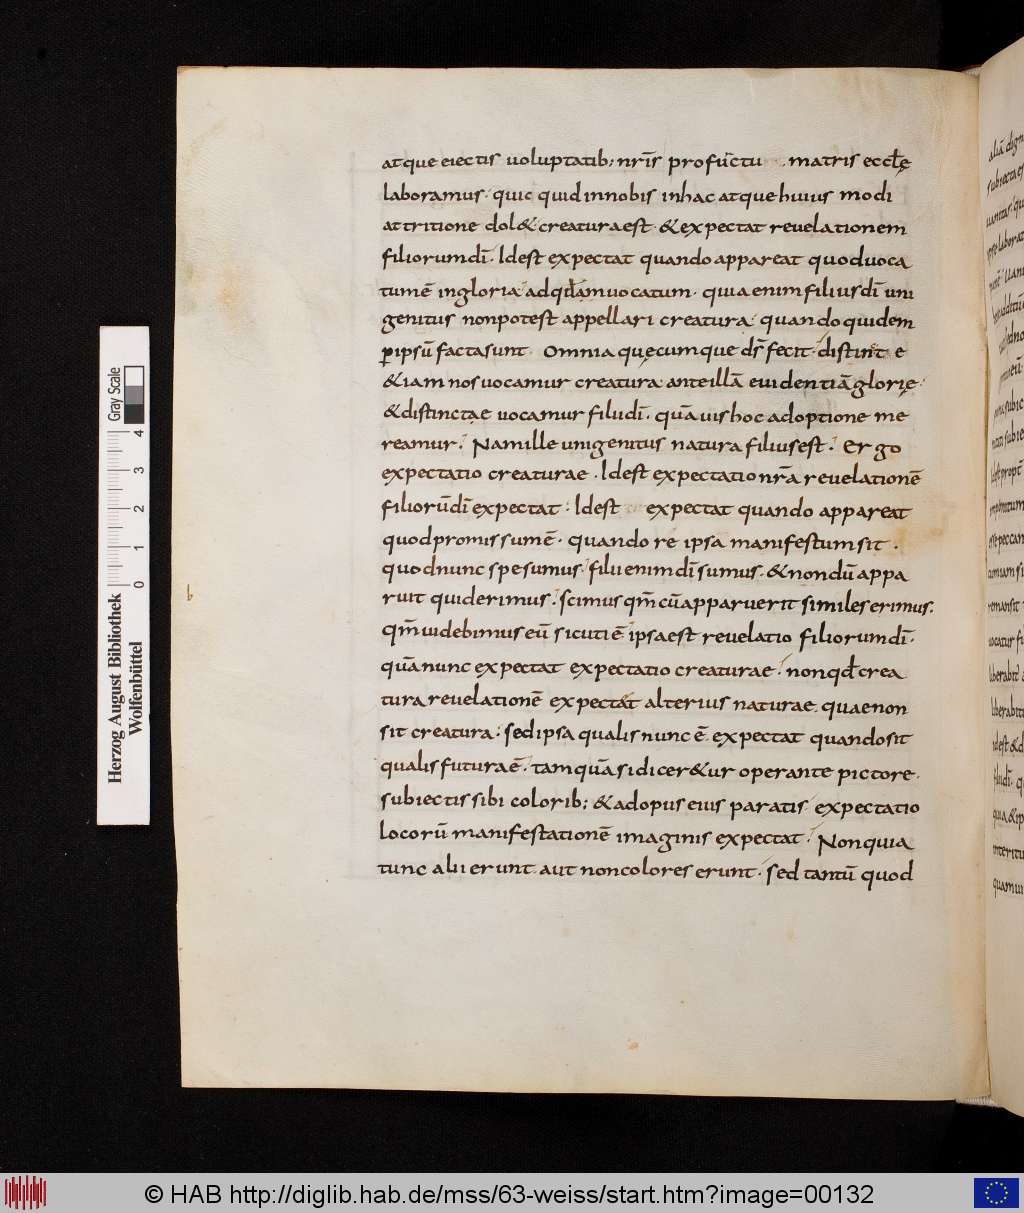 atque eiectis uoluptatib; nr̄is profuctu matris eccłę
laboramus· quic quid innobis inhac atque huius modi
attritione dol&· creatura est· &expectat reuelationem
filiorum dī· Idest expectat quando appareat quod uoca
tum ē ingloria adqđam uocatum· quia enim filius dī uni
genitus non potest appellari creatura· quando quidem
ꝑ ipsū facta sunt Omnia quęcumque ds̄ fecit· distint e
&iam nos uocamur creatura ante illā euidentiā glorię·
&distinctae uocamur filii dī· quāuis hoc adoptione me
reamur· Nam ille unigenitus natura filius est· Ergo
expectatio creaturae· Idest expectatio nr̄a reuelationē
filiorū dī expectat· Idest expectat quando appareat
quod promissum ē· quando re ipsa manifestum sit·
quod nunc spe sumus· filii enim dī sumus· &nondū appa
ruit quid erimus· scimus qm̄ cū apparuerit similes erimus.
qm̄ uidebimus eū sicuti ē ipsa est reuelatio filiorum dī·
quā nunc expectat expectatio creaturae· non qđ crea
tura reuelationē expectat alterius naturae. quae non
sit creatura· sed ipsa qualis nunc ē expectat quando sit
qualis futura ē· tamquā si dicer&ur operante pictore·
subiectis sibi colorib; &ad opus eius paratis expectatio
locorū manifestationē imaginis expectat· Non quia
tunc alii erunt aut non colores erunt· sed tantū quod
Herzog August Bibliothek
Wolfenbüttel
0 1 2 3 4
Gray Scale
© HAB http://diglib.hab.de/mss/63-weiss/start.htm?image=00132